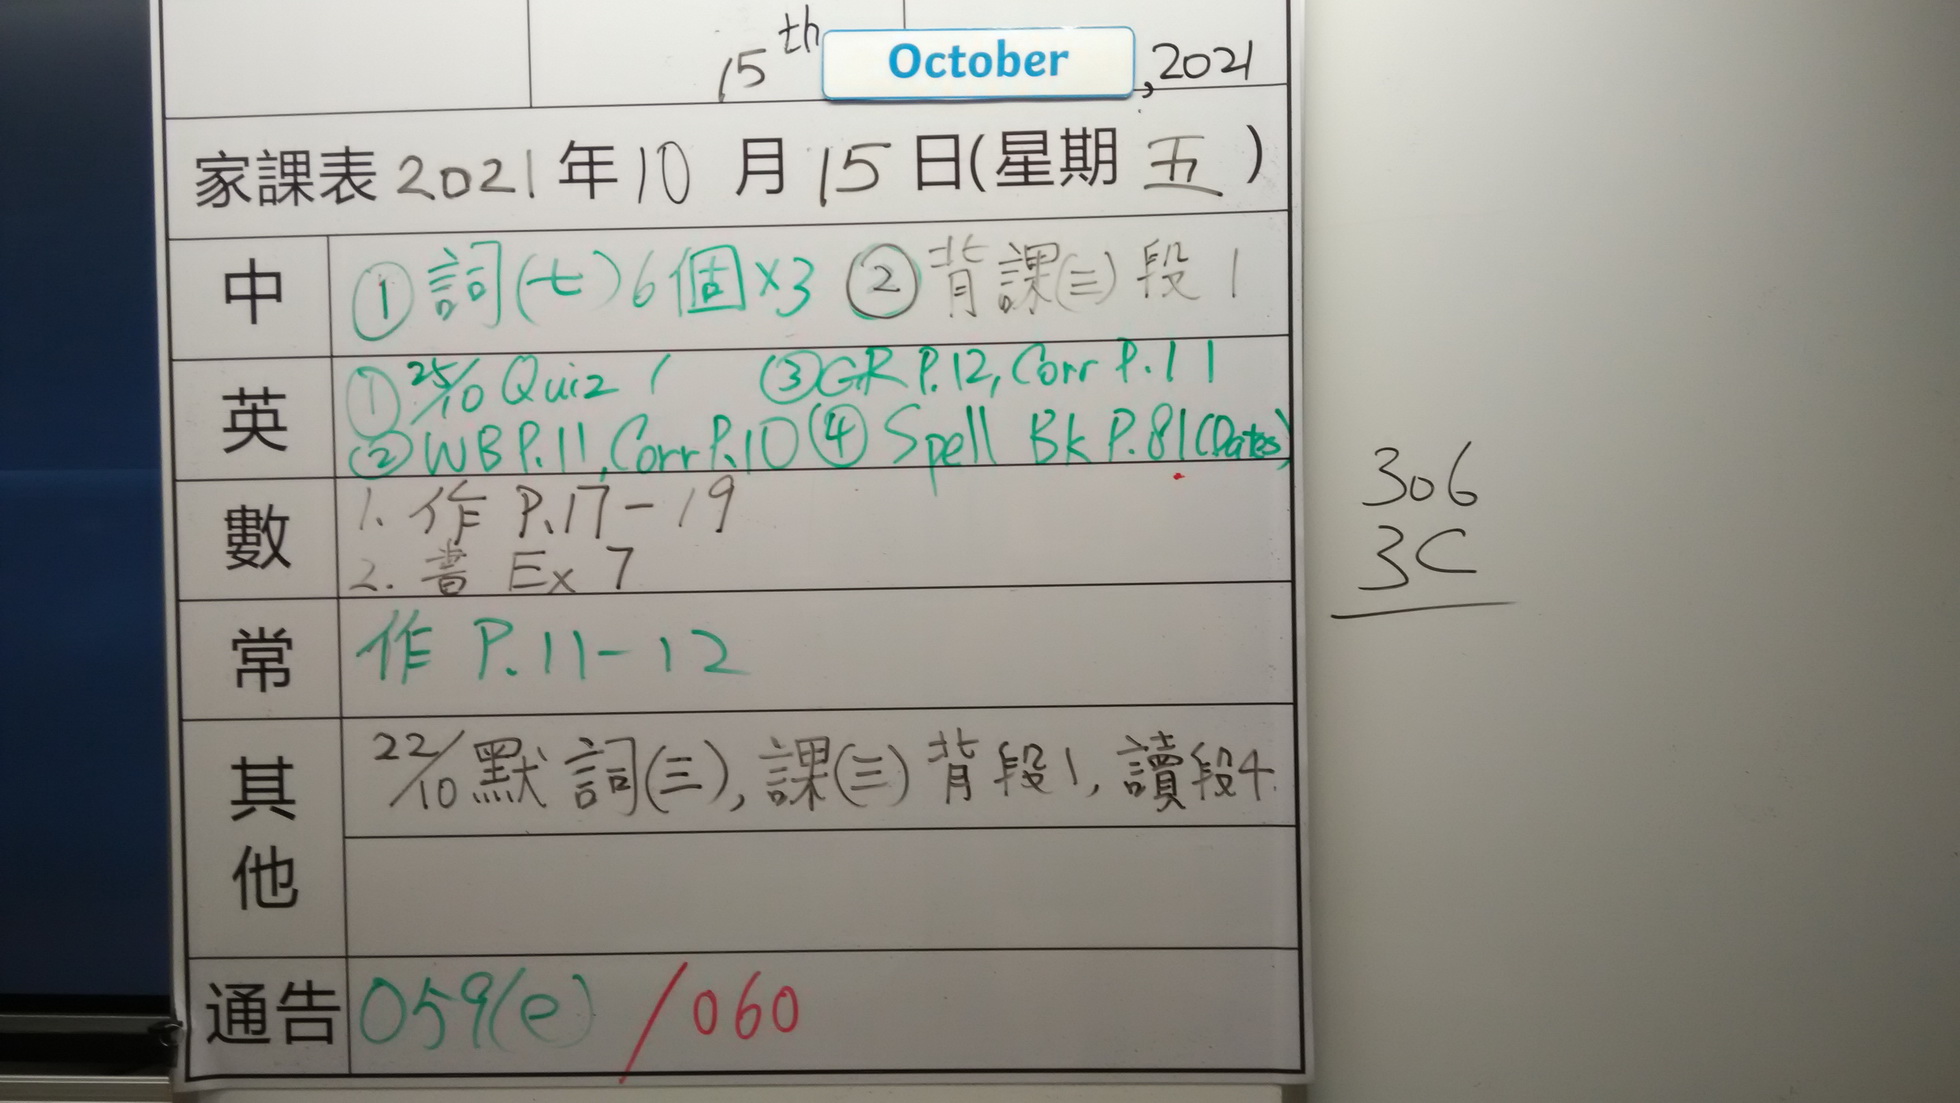 15th October, 2021
家課表 2021 年 10 月 15 日(星期 五 )
中 ① 詞(七)6個×3 ② 背課(三)段1
英 ① 25/10 Quiz 1 ③ GR P.12, Corr P.11
② WB P.11, Corr P.10 ④ Spell Bk P.81(Dates)
數 1. 作 P.17-19
2. 書 Ex 7
常 作 P.11-12
其他 22/10 默 詞(三), 課(三) 背段1, 讀段4.
通告 059(e) / 060
306
3C